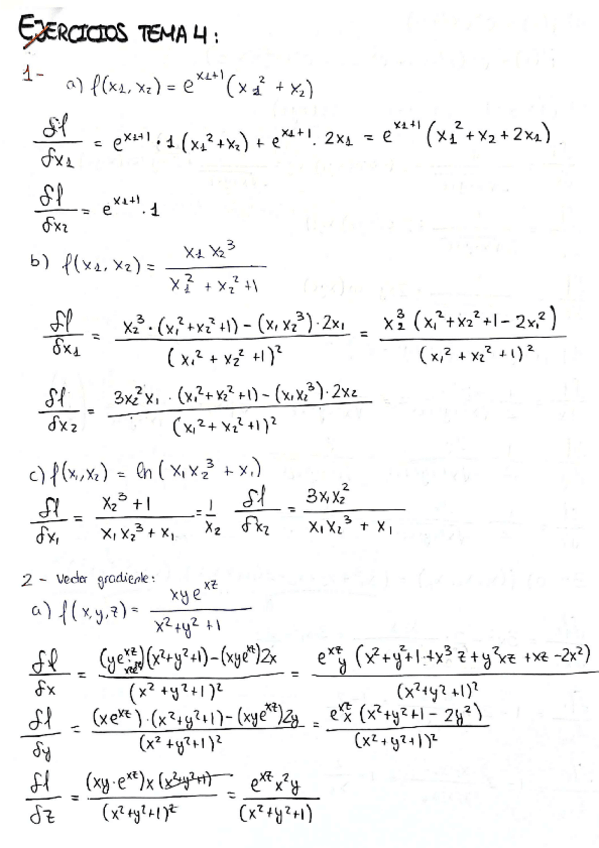 EJERCICIOS TEMA 4:
1-
a) f(x₁, x₂) = e^(x₁+1) (x₁² + x₂)
δf/δx₁ = e^(x₁+1) · 1 (x₁² + x₂) + e^(x₁+1) · 2x₁ = e^(x₁+1) (x₁² + x₂ + 2x₁)
δf/δx₂ = e^(x₁+1) · 1
b) f(x₁, x₂) = x₁ x₂³ / (x₁² + x₂² + 1)
δf/δx₁ = (x₂³ · (x₁² + x₂² + 1) - (x₁ x₂³) · 2x₁) / (x₁² + x₂² + 1)² = x₂³ (x₁² + x₂² + 1 - 2x₁²) / (x₁² + x₂² + 1)²
δf/δx₂ = (3x₂² x₁ · (x₁² + x₂² + 1) - (x₁ x₂³) · 2x₂) / (x₁² + x₂² + 1)²
c) f(x₁, x₂) = ln (x₁ x₂³ + x₁)
δf/δx₁ = (x₂³ + 1) / (x₁ x₂³ + x₁) = 1/x₂ δf/δx₂ = 3x₁x₂² / (x₁ x₂³ + x₁)
2 - Vector gradiente:
a) f(x, y, z) = xy e^(xz) / (x² + y² + 1)
δf/δx = ((y e^(xz)) (x² + y² + 1) - (xy e^(xz)) 2x) / (x² + y² + 1)² = e^(xz) y (x² + y² + 1 + x³ z + y² xz + xz - 2x²) / (x² + y² + 1)²
δf/δy = ((x e^(xz)) · (x² + y² + 1) - (xy e^(xz)) 2y) / (x² + y² + 1)² = e^(xz) x (x² + y² + 1 - 2y²) / (x² + y² + 1)²
δf/δz = (xy · e^(xz)) x (x² + y² + 1) / (x² + y² + 1)² = e^(xz) x² y / (x² + y² + 1)